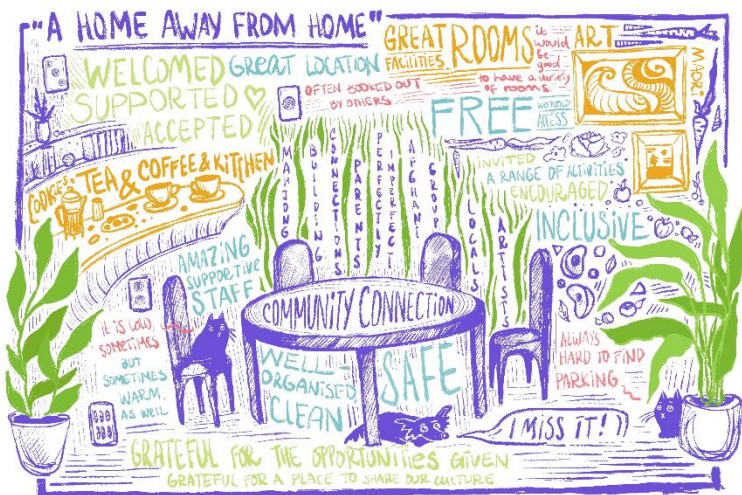 "A HOME AWAY FROM HOME"
WELCOMED
SUPPORTED
ACCEPTED
GREAT LOCATION
GREAT
FACILITIES
ROOMS
it would be good
to have a variety
of rooms
OFTEN BOOKED OUT
BY OTHERS
ART
MAORI
FREE
WEEKEND
ACCESS
COOKIES
TEA & COFFEE & KITCHEN
MAHJONG
BUILDING
CONNECTIONS
PARENTS
PERFECTLY
IMPERFECT
AFGHANI
GROUP
LOCALS
ARTISTS
INVITED
A RANGE OF ACTIVITIES
ENCOURAGED
INCLUSIVE
AMAZING
SUPPORTIVE
STAFF
COMMUNITY CONNECTION
IT IS COLD
SOMETIMES
BUT
SOMETIMES
WARM
AS WELL
WELL-
ORGANISED
CLEAN
SAFE
ALWAYS
HARD TO FIND
PARKING
I MISS IT!
GRATEFUL FOR THE OPPORTUNITIES GIVEN
GRATEFUL FOR A PLACE TO SHARE OUR CULTURE